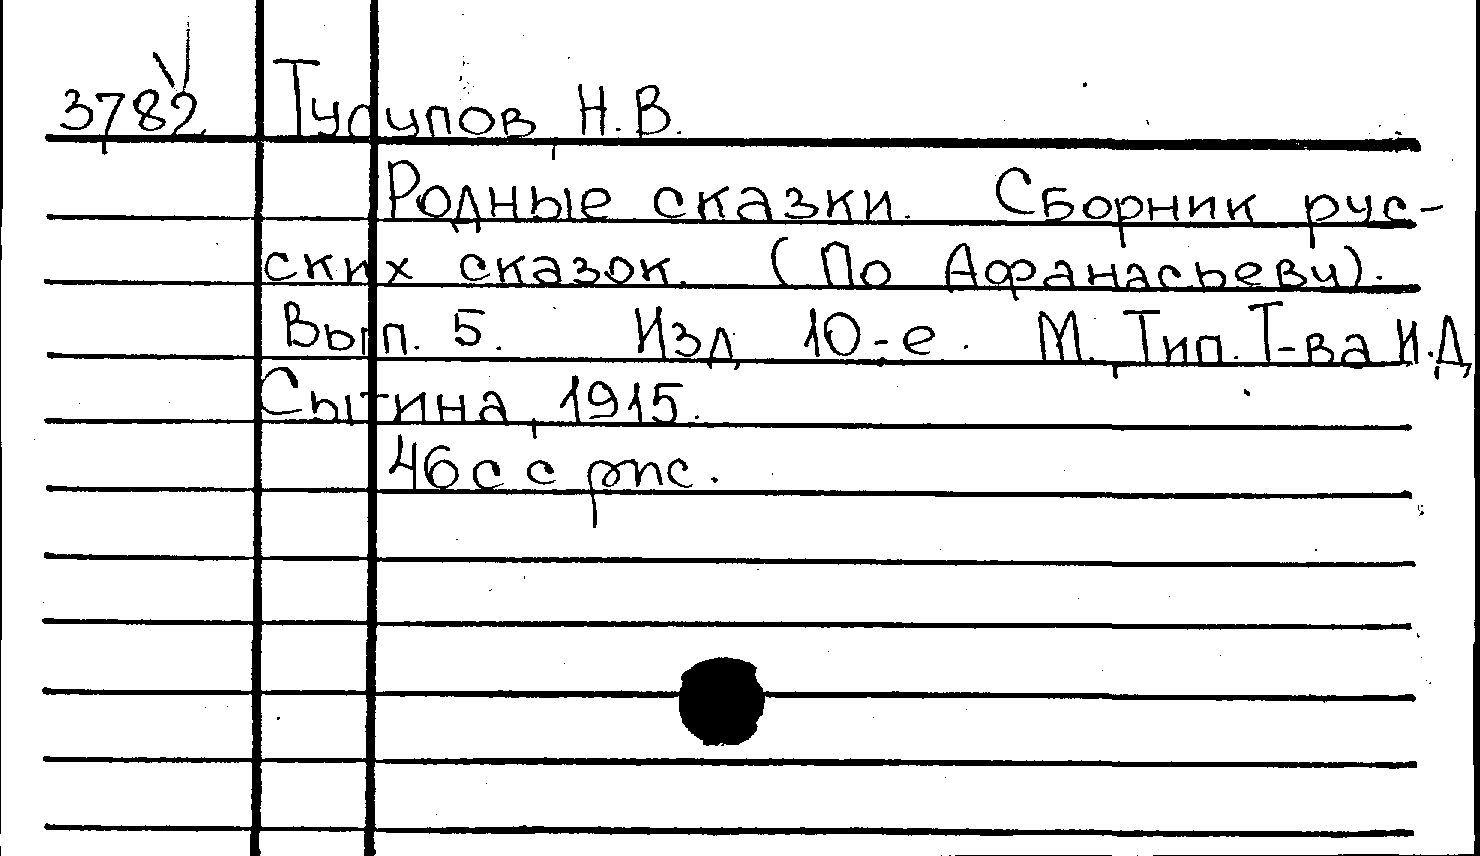 3782 Тулупов, Н.В.
Родные сказки. Сборник рус-
ских сказок. (По Афанасьеву).
Вып. 5. Изд. 10-е. М. Тип. Т-ва И.Д.
Сытина, 1915.
46 с с рис.